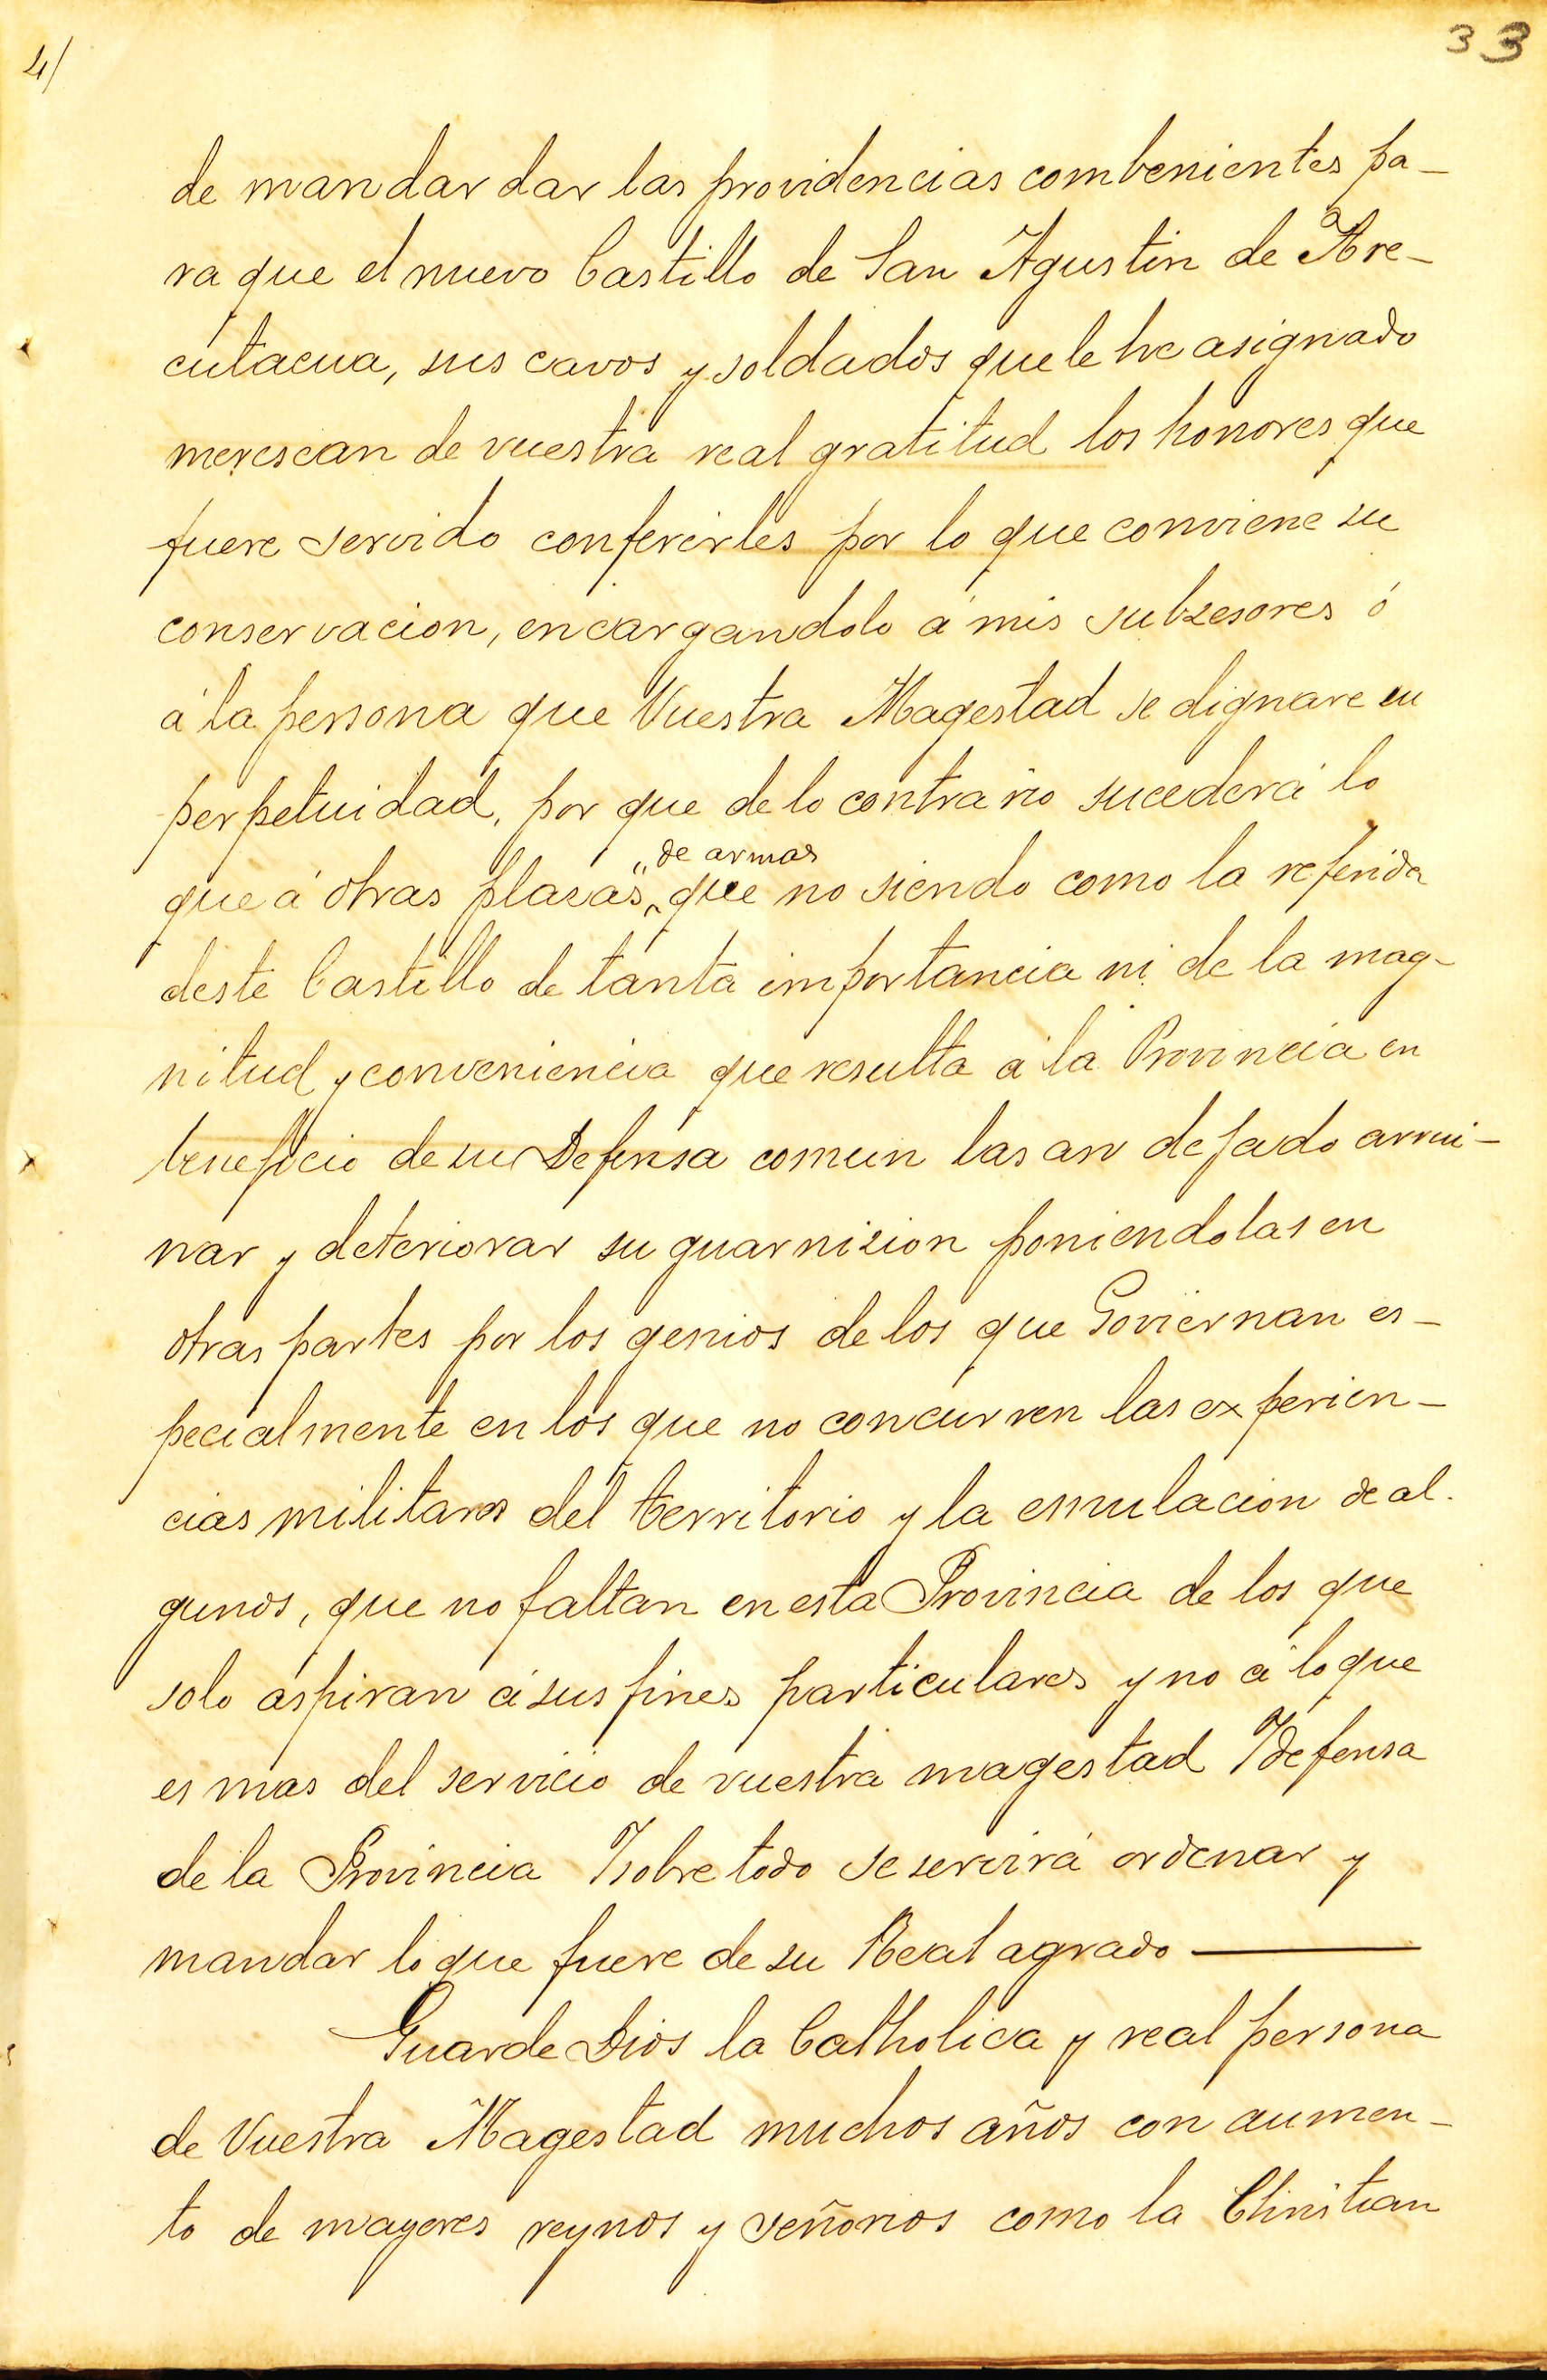 4/
33
de mandar dar las providencias combenientes pa-
ra que el nuevo Castillo de San Agustin de Are-
cutacua, sus cavos y soldados que le he asignado
merescan de vuestra real gratitud los honores que
fuere servido conferirles por lo que conviene su
conservacion, encargandolo á mis subzesores ó
á la persona que Vuestra Magestad se dignare en
perpetuidad, por que de lo contrario sucederá lo
"de armas
que á otras plasas" que no siendo como la referida
deste Castillo de tanta importancia ni de la mag-
nitud y conveniencia que resulta á la Provincia en
beneficio de su Defensa comun las an dejado arrui-
nar y deteriorar su guarnizion poniendolas en
otras partes por los genios de los que Goviernan es-
pecialmente en los que no concurren las experien-
cias militares del territorio y la emulacion de al-
gunos, que no faltan en esta Provincia de los que
solo aspiran á sus fines particulares y no á lo que
es mas del servicio de vuestra magestad Y defensa
de la Provincia Y sobre todo se servirá ordenar y
mandar lo que fuere de su Real agrado —
Guarde Dios la Catholica y real persona
de Vuestra Magestad muchos años con aumen-
to de mayores reynos y señorios como la Christian